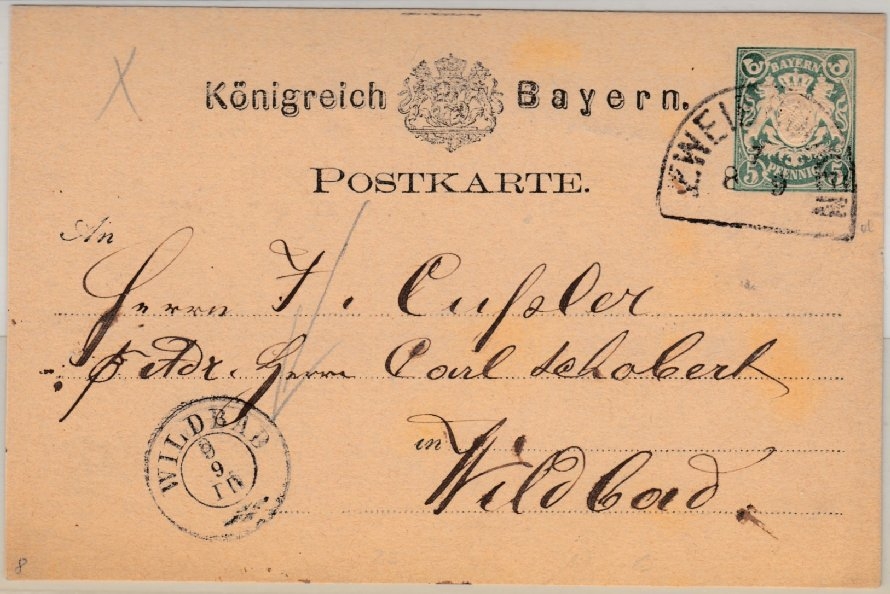 Königreich Bayern.
BAYERN
PFENNIG
5 5 5 5
ZWEIB
7
8 9
POSTKARTE.
An
Herrn J. Cußler
Adr. Herrn Carl Schobert
in Wildbad.
WILDBAD
8
9
III
8